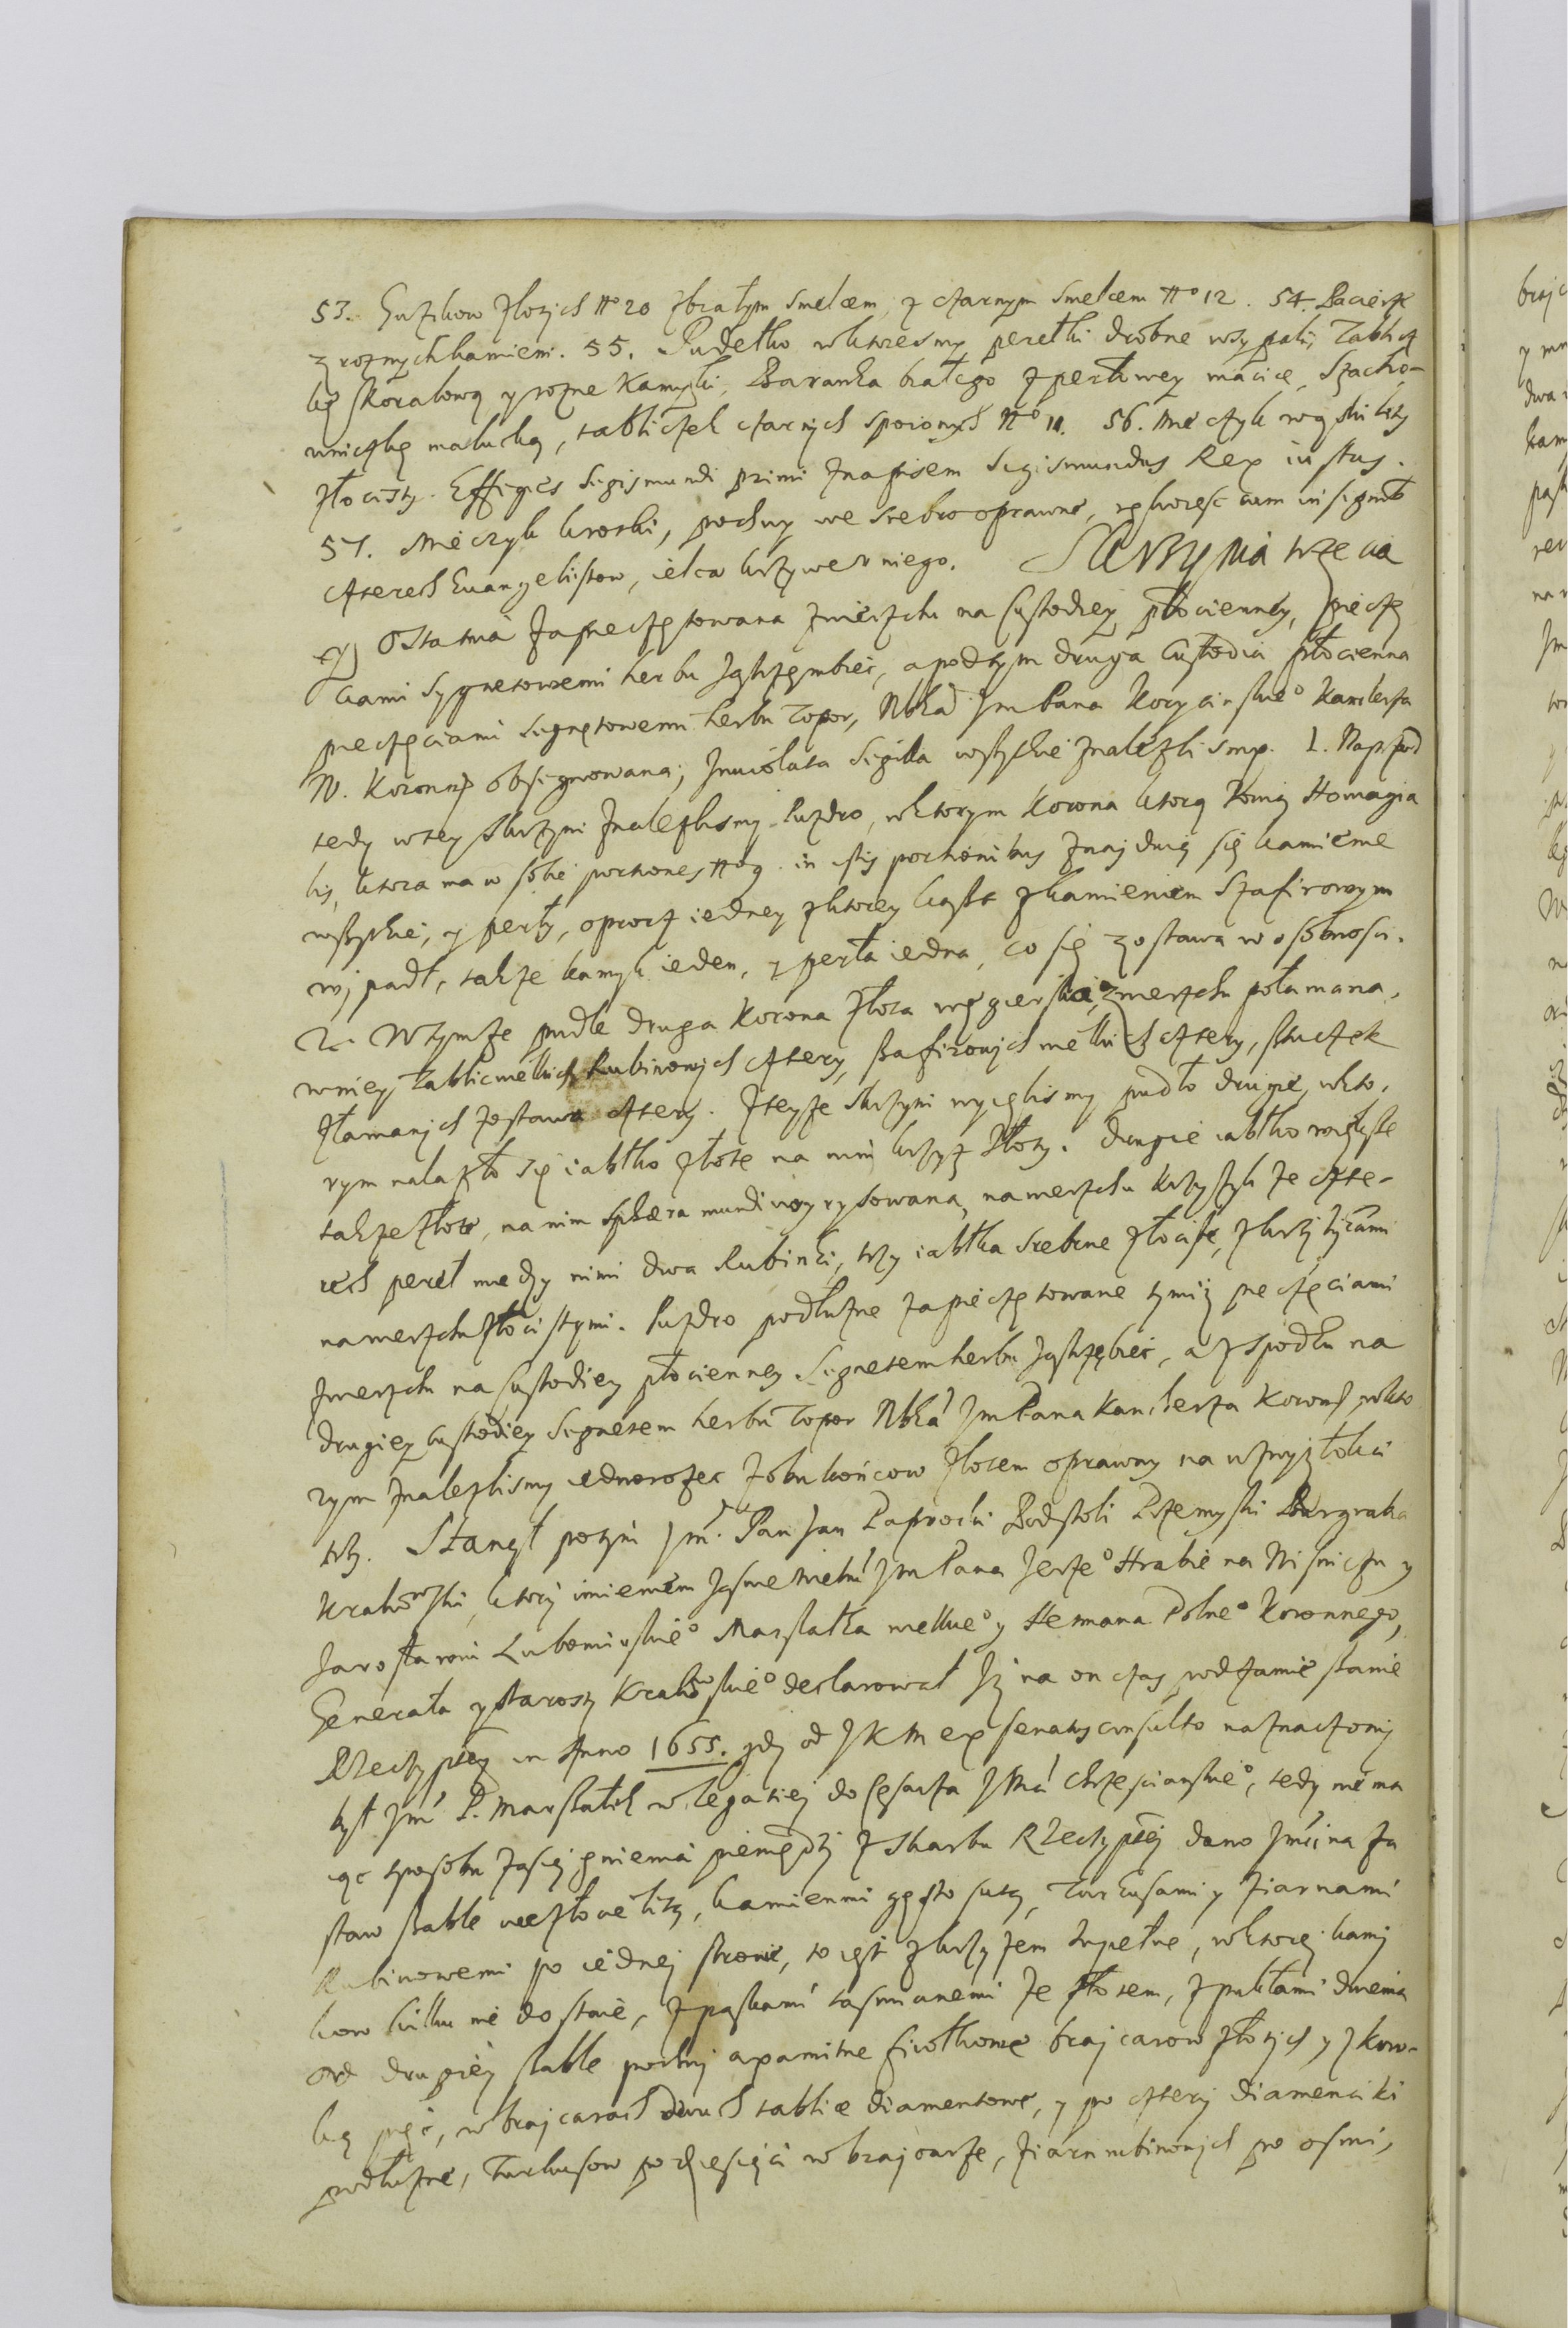 53. Guzikow złotych No 20 z białym smelcem, z czarnym smelcem No 12. 54. Pacierze
z roznych kamieni. 55. Pudełko w ktoresmy perełki drobne wsypali, Tablicz
kę szkoralową y rozne Kamyki, Baranka białego z perłowey macice, Szacho-
wniczkę maluchą, tabliczek czarnych spoionych No 11. 56. Mieczyk wąski krzy
złocisty. Effigies Sigismundi primi z napisem Sigismundus Rex iustus.
57. Mieczyk krotki, pochwy we srebro oprawne, rękoiesc cum insignib
czterech Euangelistow, ielca krzywe v niego. Skrzynia trzecia
y Ostatnia zapieczętowana z wierzchu na Custodiey płocienney, pieczę
ciami sygnetowemi herbu Jastrzęmbiec, a pod tym druga Custodia płocienna
pieczęciami signetowemi herbu Topor, Nbła Jm Pana Korycinskieo Kanclerza
W. Koronneo obsignowana; Inuiolata Sigilla wszystkie znalezlismy. 1. Naprzod
tedy w tey skrzyni znalezlismy Puzdro, w ktorym Korona ktorą zowią Homagia
lis, ktora ma w sobie portiones No 9. in istis portionibus znayduią się kamienie
wszystkie, y perły, oprocz iedney z ktorey kaszt z kamieniem Szafirowym
wypadł, także kamyk ieden, y perła iedna, co się zostawa w osobnosci.
2. W tymże pudle druga Korona złota węgierska, z wierzchu połamana,
w niey Tablic wielkich Rubinowych cztery, szafirowych wielkich cztery, sztuczek
złamanych zostawa cztery. Z teyże skrzyni wyięlismy pudło drugie, w kto-
rym nalazło się iabłko złote na nim krzyż złoty. Drugie iabłko większe
także złote, na nim sphæra mundi wyrysowana, na wierzchu krzyżyk ze czte-
rech pereł między nimi dwa Rubinki, trzy iabłka srebrne złociste, z krzyżykami
na wierzchu złocistymi. Puzdro podłużne zapieczętowane tymiż pieczęciami
z wierzchu na Custodiey płocienney Signetem herbu Jastrzębiec, a z spodku na
drugiey Custodiey Signetem herbu Topor Nbła Jm Pana Kanclerza Koronneo w kto
rym znalezlismy iednorożec z obu końcow złotem oprawny na wzwyż łokci
trzy. Stanął potym Jm. Pan Jan Paprocki Podstoli Przemyski Burgrabia
Krakowski, ktory imieniem Jasnie Wielm Jm Pana Jerzeo Hrabie na Wisniczu y
Jarosławiu Lubomirskieo Marszałka wielkieo y Hetmana Polneo Koronnego,
Generała y starosty Krakowskieo declarował Iż na on czas pod zamieszanie
Rzeczyptey in Anno 1655. gdy od JKM ex senatus consulto naznaczony
był Jm P. Marszałek w legatiey do Cesarza JMci chrzescianskieo, tedy nie ma
iąc sposobu zasiągnienia pieniędzy z skarbu Rzeczyptey dano Jmci na za
staw szable uezłocielitą, kamienmi gęsto sutą, Turkusami y ziarnami
Rubinowemi po iedney stronie, to iest z krzyżem zupełne, w ktorey kamy
kow kilku nie dostaie, z paskami tasmianemi ze złotem, z pukłami dwiema
od drugiey szable pochwy axamitne fiołkowe brajcarow złotych y z koro-
ką pięć, w brajcarach dwuch tablice diamentowe, y po cztery diamenciki
podłużne, Turkusow po dziesięci w brajcarze, ziarn rubinowych po osmi,